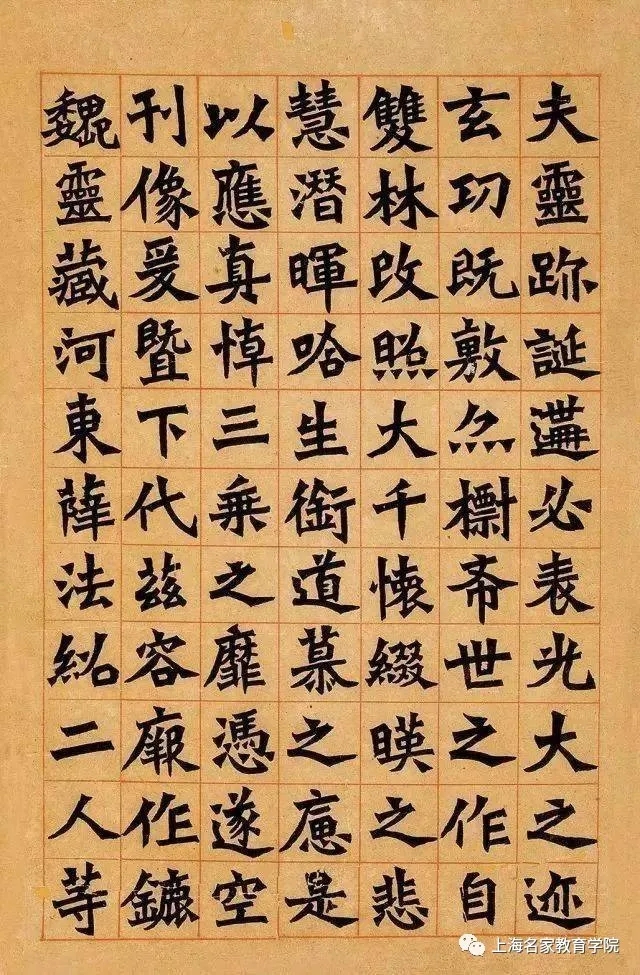 夫靈跡誕遘必表光大之迹
玄㓛既敷亦標希世之作自
雙林改照大千懷綴暎之悲
慧潛暉唅生銜道慕之痛是
以應真悼三乘之靡憑遂空
刊像爰暨下代茲容厥作鑣
魏靈藏河東薛法紹二人等
上海名家教育学院